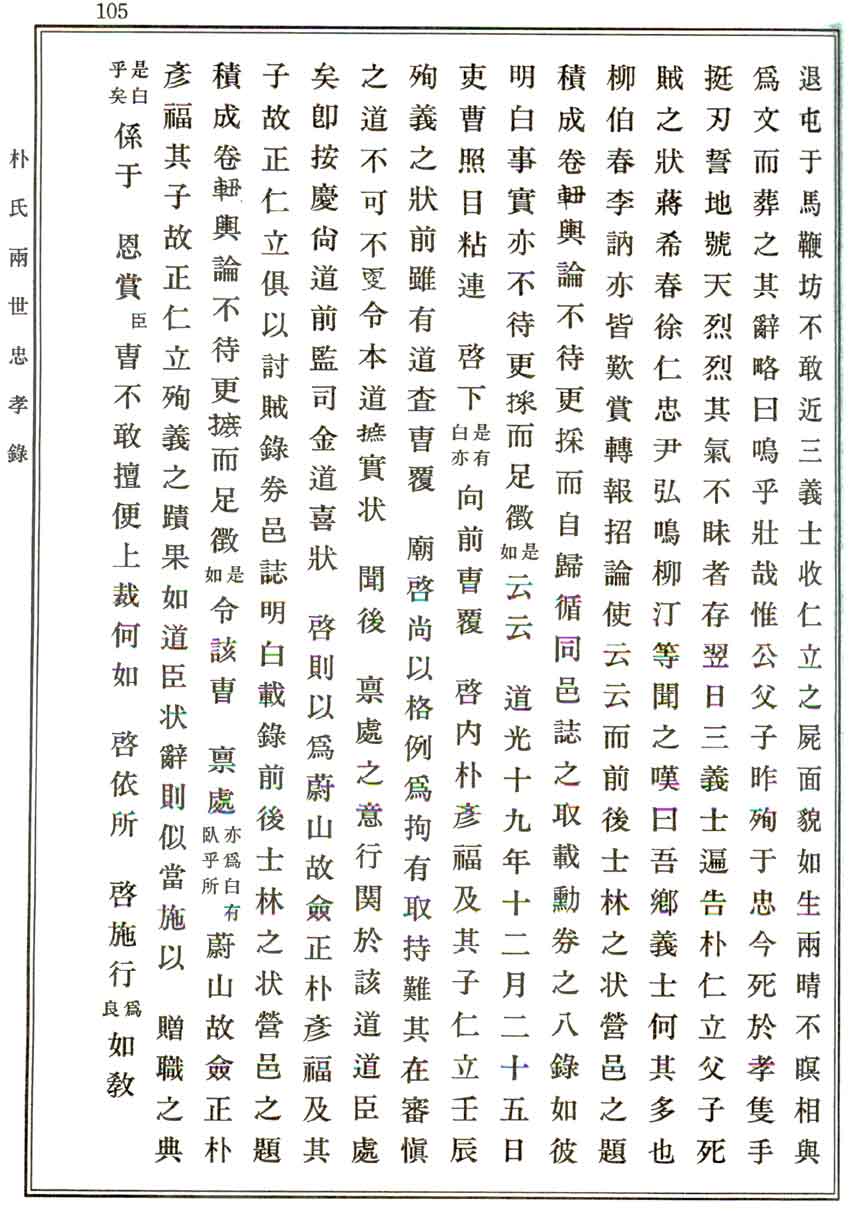 105
退屯于馬鞭坊不敢近三義士收仁立之屍面貌如生兩晴不瞑相與
爲文而葬之其辭略曰嗚乎壯哉惟公父子昨殉于忠今死於孝隻手
挺刃誓地號天烈烈其氣不昧者存翌日三義士遍告朴仁立父子死
賊之狀蔣希春徐仁忠尹弘鳴柳汀等聞之嘆曰吾鄕義士何其多也
柳伯春李訥亦皆歎賞轉報招論使云云而前後士林之状營邑之題
積成卷軸輿論不待更採而自歸循同邑誌之取載勳券之八錄如彼
明白事實亦不待更採而足徵是如云云 道光十九年十二月二十五日
吏曺照目粘連 啓下是有白亦向前曺覆 啓内朴彦福及其子仁立壬辰
殉義之狀前雖有道査曺覆 廟啓尚以格例爲拘有取持難其在審愼
之道不可不更令本道摭實状 聞後 禀處之意行関於該道道臣處
矣卽按慶尙道前監司金道喜狀 啓則以爲蔚山故僉正朴彦福及其
子故正仁立俱以討賊錄券邑誌明白載錄前後士林之状營邑之題
積成卷軸輿論不待更摭而足徵是如令該曺 禀處亦爲白有臥乎所蔚山故僉正朴
彦福其子故正仁立殉義之蹟果如道臣状辭則似當施以 贈職之典
是白乎矣係于 恩賞臣曺不敢擅便上裁何如 啓依所 啓施行爲良如敎
朴氏兩世忠孝錄